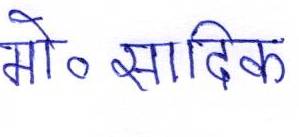 मो० सादिक